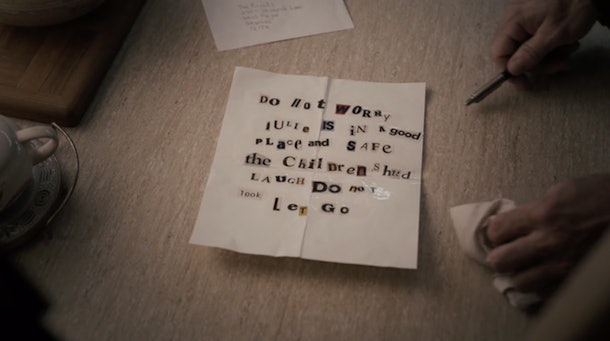 DO Not WORRy
JULIe IS iN A good
PLAce and SAFE
the ChildreN Shud
LAUGH DO noT
look
LeT GO